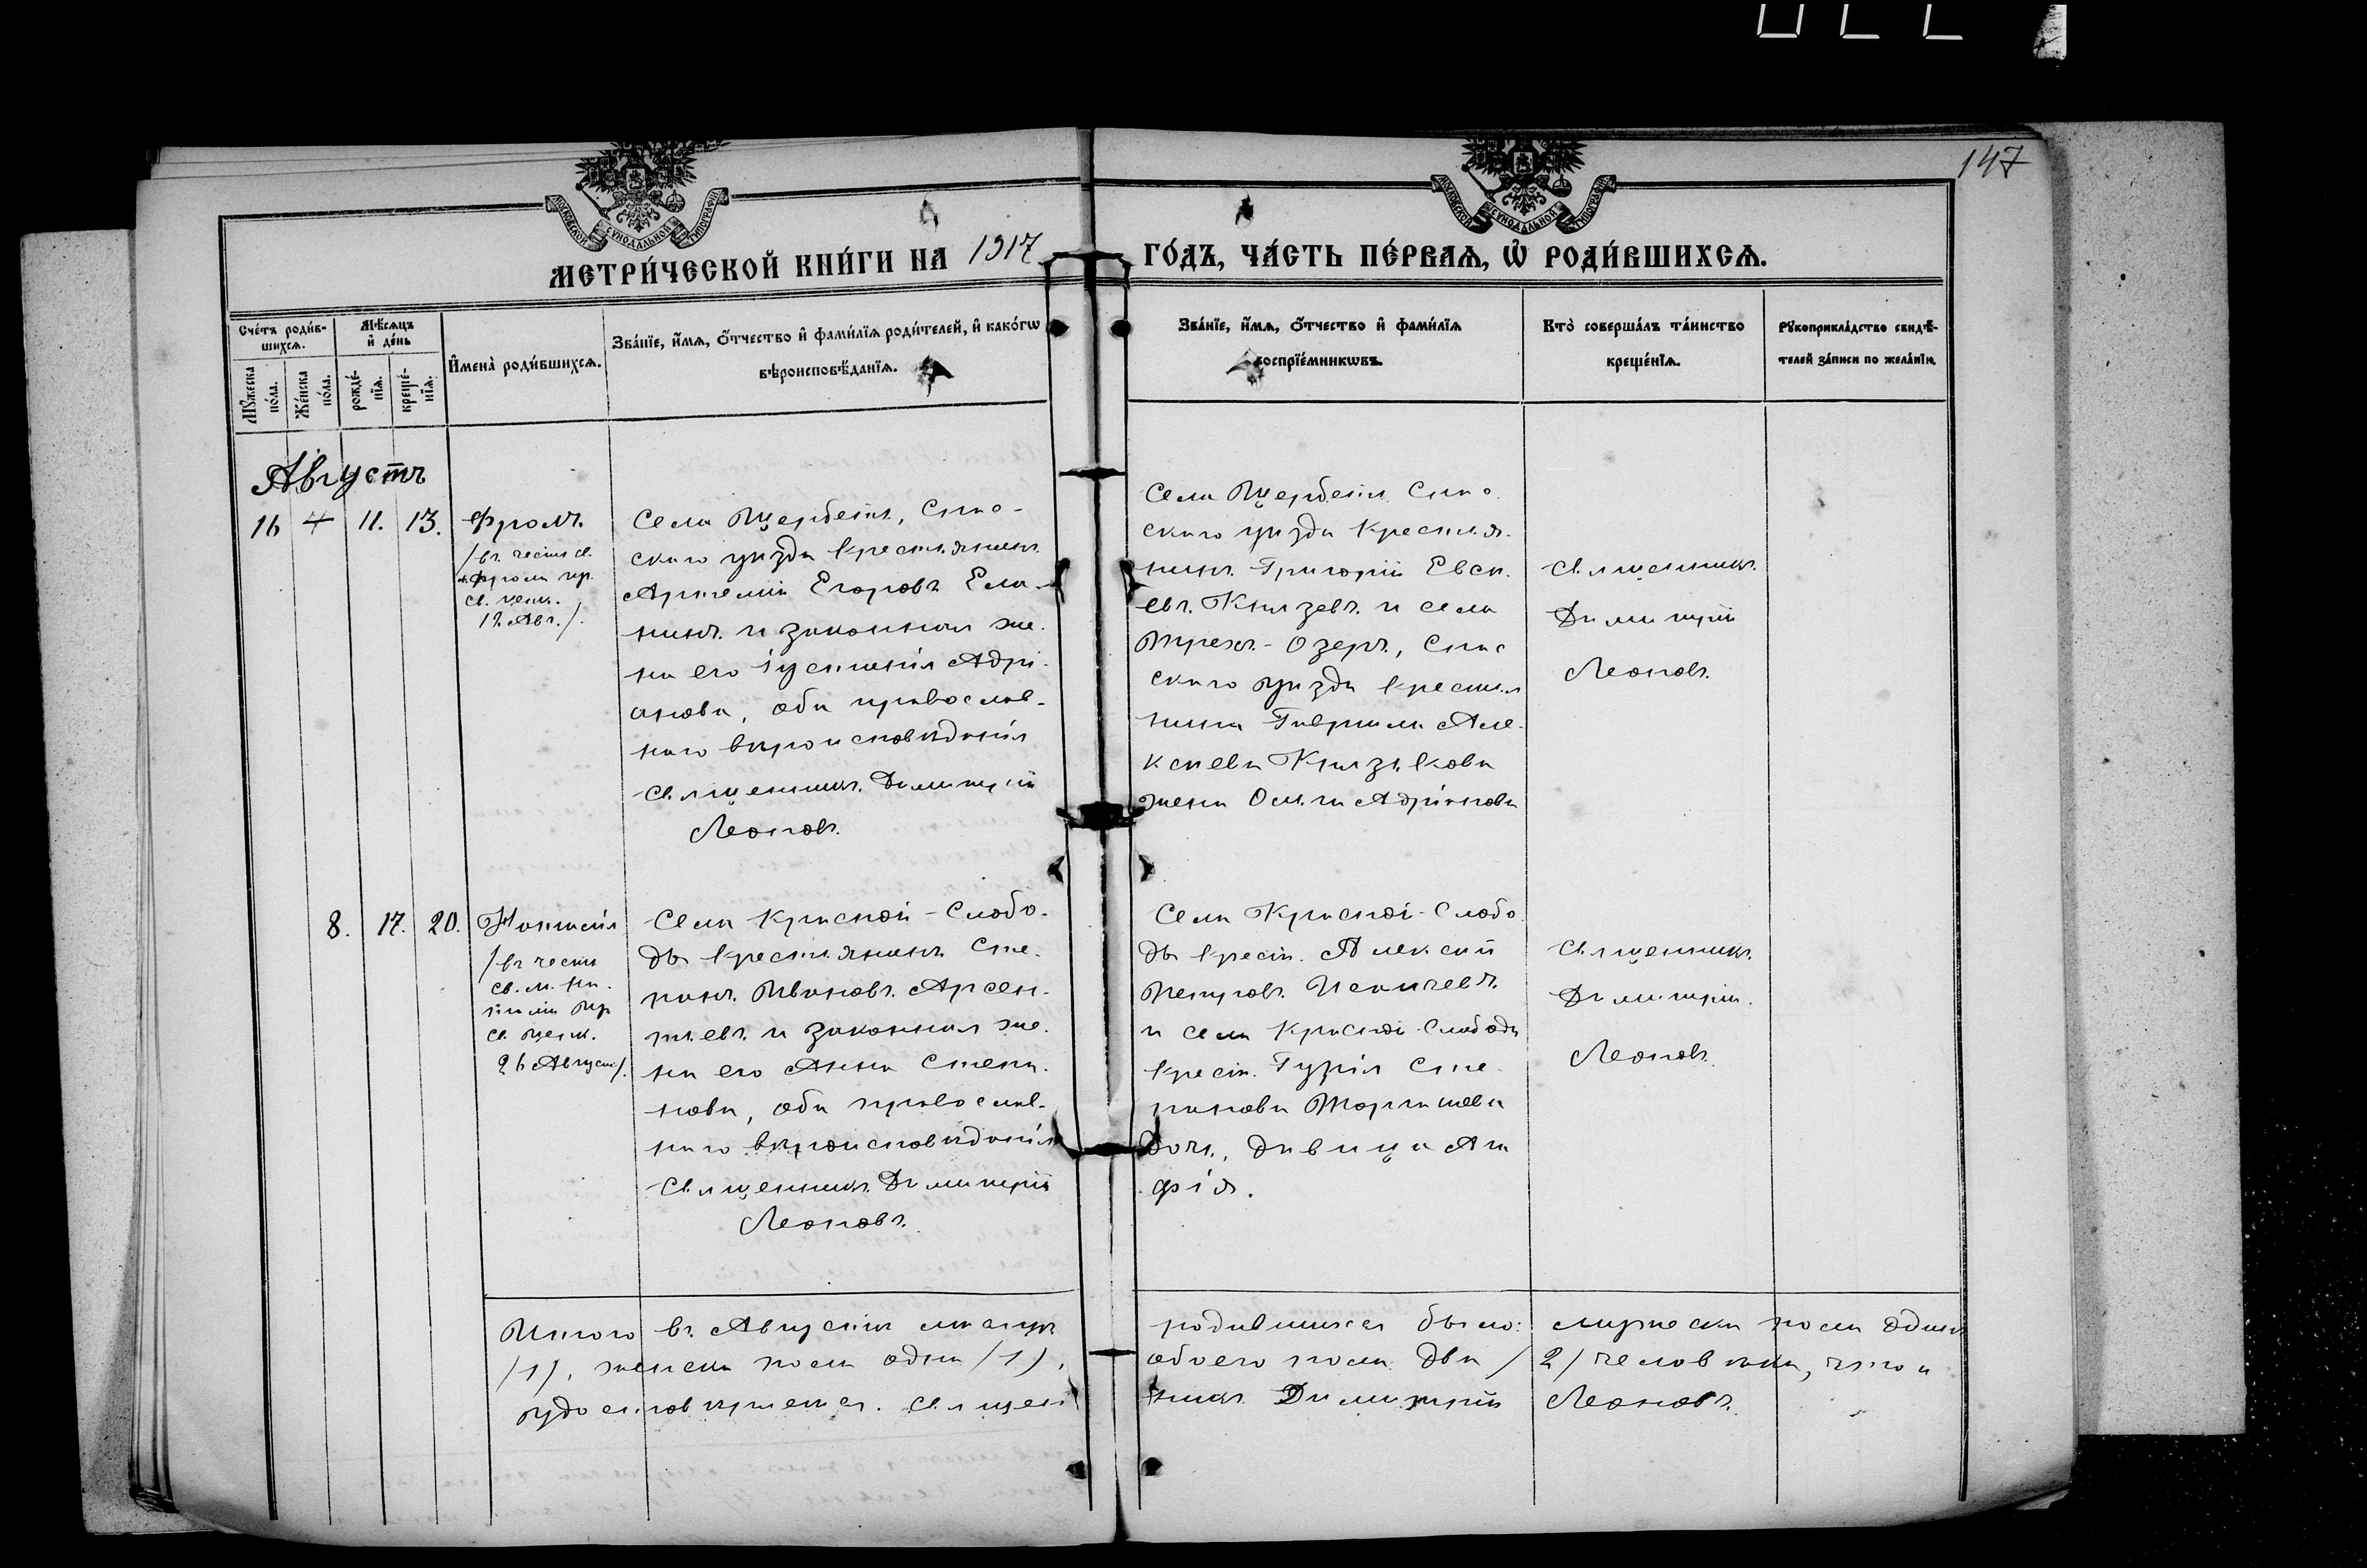 147
МОСКОВСКОЙ СѴНОДАЛЬНОЙ ТИПОГРАФІИ
МОСКОВСКОЙ СѴНОДАЛЬНОЙ ТИПОГРАФІИ
МЕТРИ́ЧЕСКОЙ КНИ́ГИ НА 1917 ГО́ДЪ, ЧА́СТЬ ПЕ́РВАѦ, Ѡ҆ РОДИ́ВШИХСѦ.
Сче́тъ роди́в-
шихсѧ.
Мѣ́сѧцъ
и҆ де́нь
Мꙋ́жеска
по́ла.
Же́нска
по́ла.
рожде́-
нїѧ.
креще́-
нїѧ.
И҆мена̀ роди́вшихсѧ.
Зва́нїе, и҆́мѧ, ѻ҆́тчество и҆ фами́лїѧ роди́телей, и҆ како́гѡ
вѣроисповѣ́данїѧ.
Зва́нїе, и҆́мѧ, ѻ҆́тчество и҆ фами́лїѧ
воспрїе́мникѡвъ.
Кто̀ соверша́лъ та́инство
креще́нїѧ.
Рꙋкоприкла́дство свидѣ́-
телей за́писи по жела́нїю.
Августъ
16 11. 13.
Фролъ
/въ честь св.
м. Флора пр.
св. церк.
18 Авг./.
Села Щербети, Спас-
скаго уѣзда крестьянинъ
Артемій Егоровъ Ела-
нинъ и законная же-
на его Іустинія Адрі-
анова, оба православ-
наго вѣроисповѣданія
Священникъ Димитрій
Леоновъ.
Села Щербети Спас-
скаго уѣзда крестья-
нинъ Григорій Евсѣ-
евъ Князевъ и села
Трехъ-Озеръ, Спас
скаго уѣзда крестья
нина Гавріила Але-
ксѣева Князькова
жена Ольга Адріанова
Священникъ
Димитрій
Леоновъ.
8. 17. 20.
Наталія
/въ честь
св. м. На-
таліи пр
св. церк.
26 Август./.
Села Красной-Слобо-
ды крестьянинъ Сте-
панъ Ивановъ Арсен-
тьевъ и законная же-
на его Анна Степа-
нова, оба православ-
наго вѣроисповѣданія
Священникъ Димитрій
Леоновъ.
Села Красной-Слобо
ды крестьян. Алексѣй
Петровъ Исаичевъ
и села Красной-Слободы
крестьян. Гурія Сте-
панова
дочь, дѣвица Ага
фія.
Священникъ
Димитрій
Леоновъ.
Итого въ Августѣ мѣсяцѣ родившихся было: мужеска пола одинъ
/1/, женска пола одна /1/, обоего пола два /2/ человѣка, что и
удостовѣряется. Священникъ Димитрій Леоновъ.